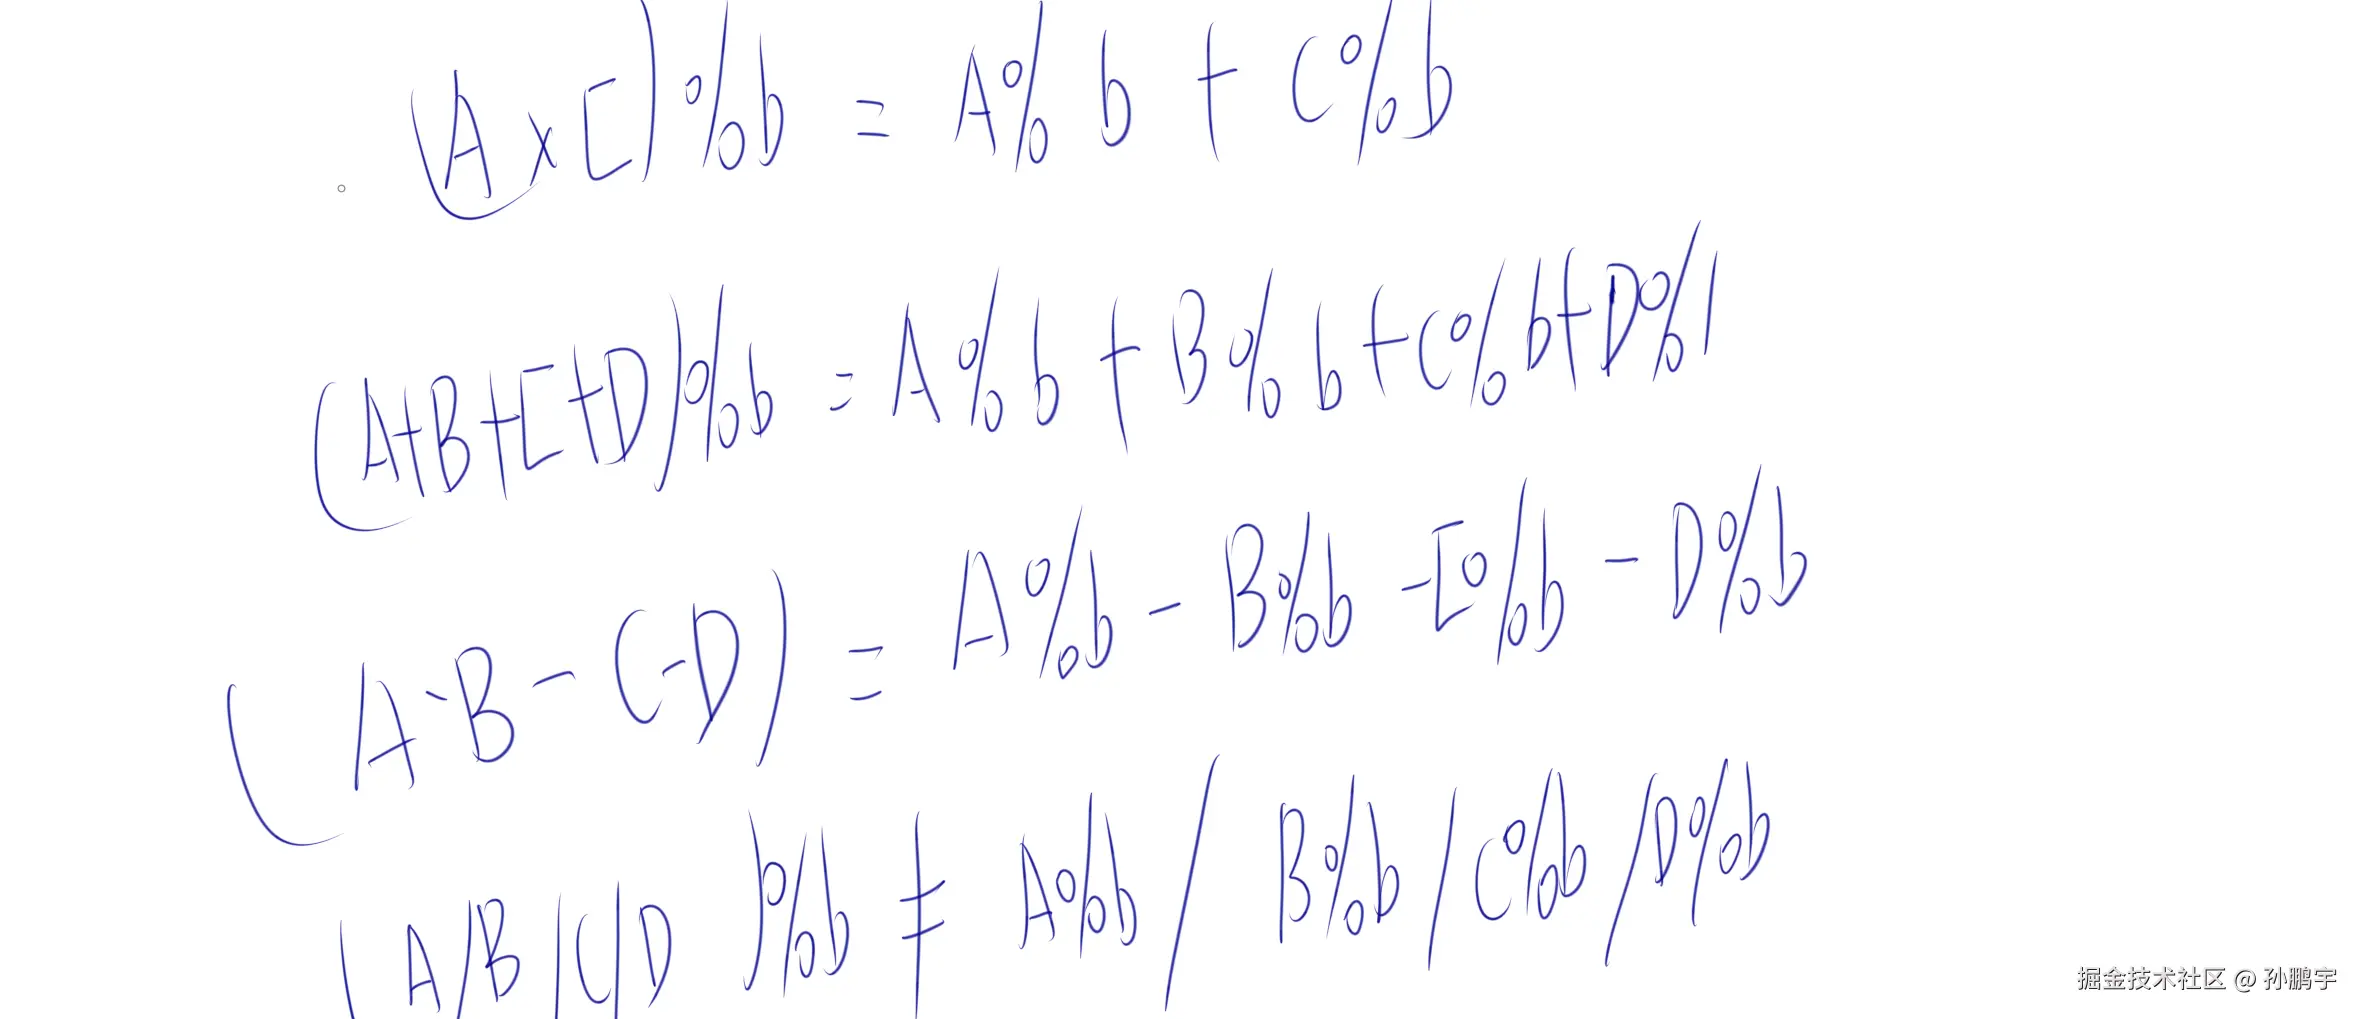 (A×C)%b = A%b + C%b
(A+B+C+D)%b = A%b + B%b + C%b + D%
(A-B-C-D) = A%b - B%b - C%b - D%b
(A/B/C/D)%b ≠ A%b / B%b / C%b / D%b
掘金技术社区 @ 孙鹏宇